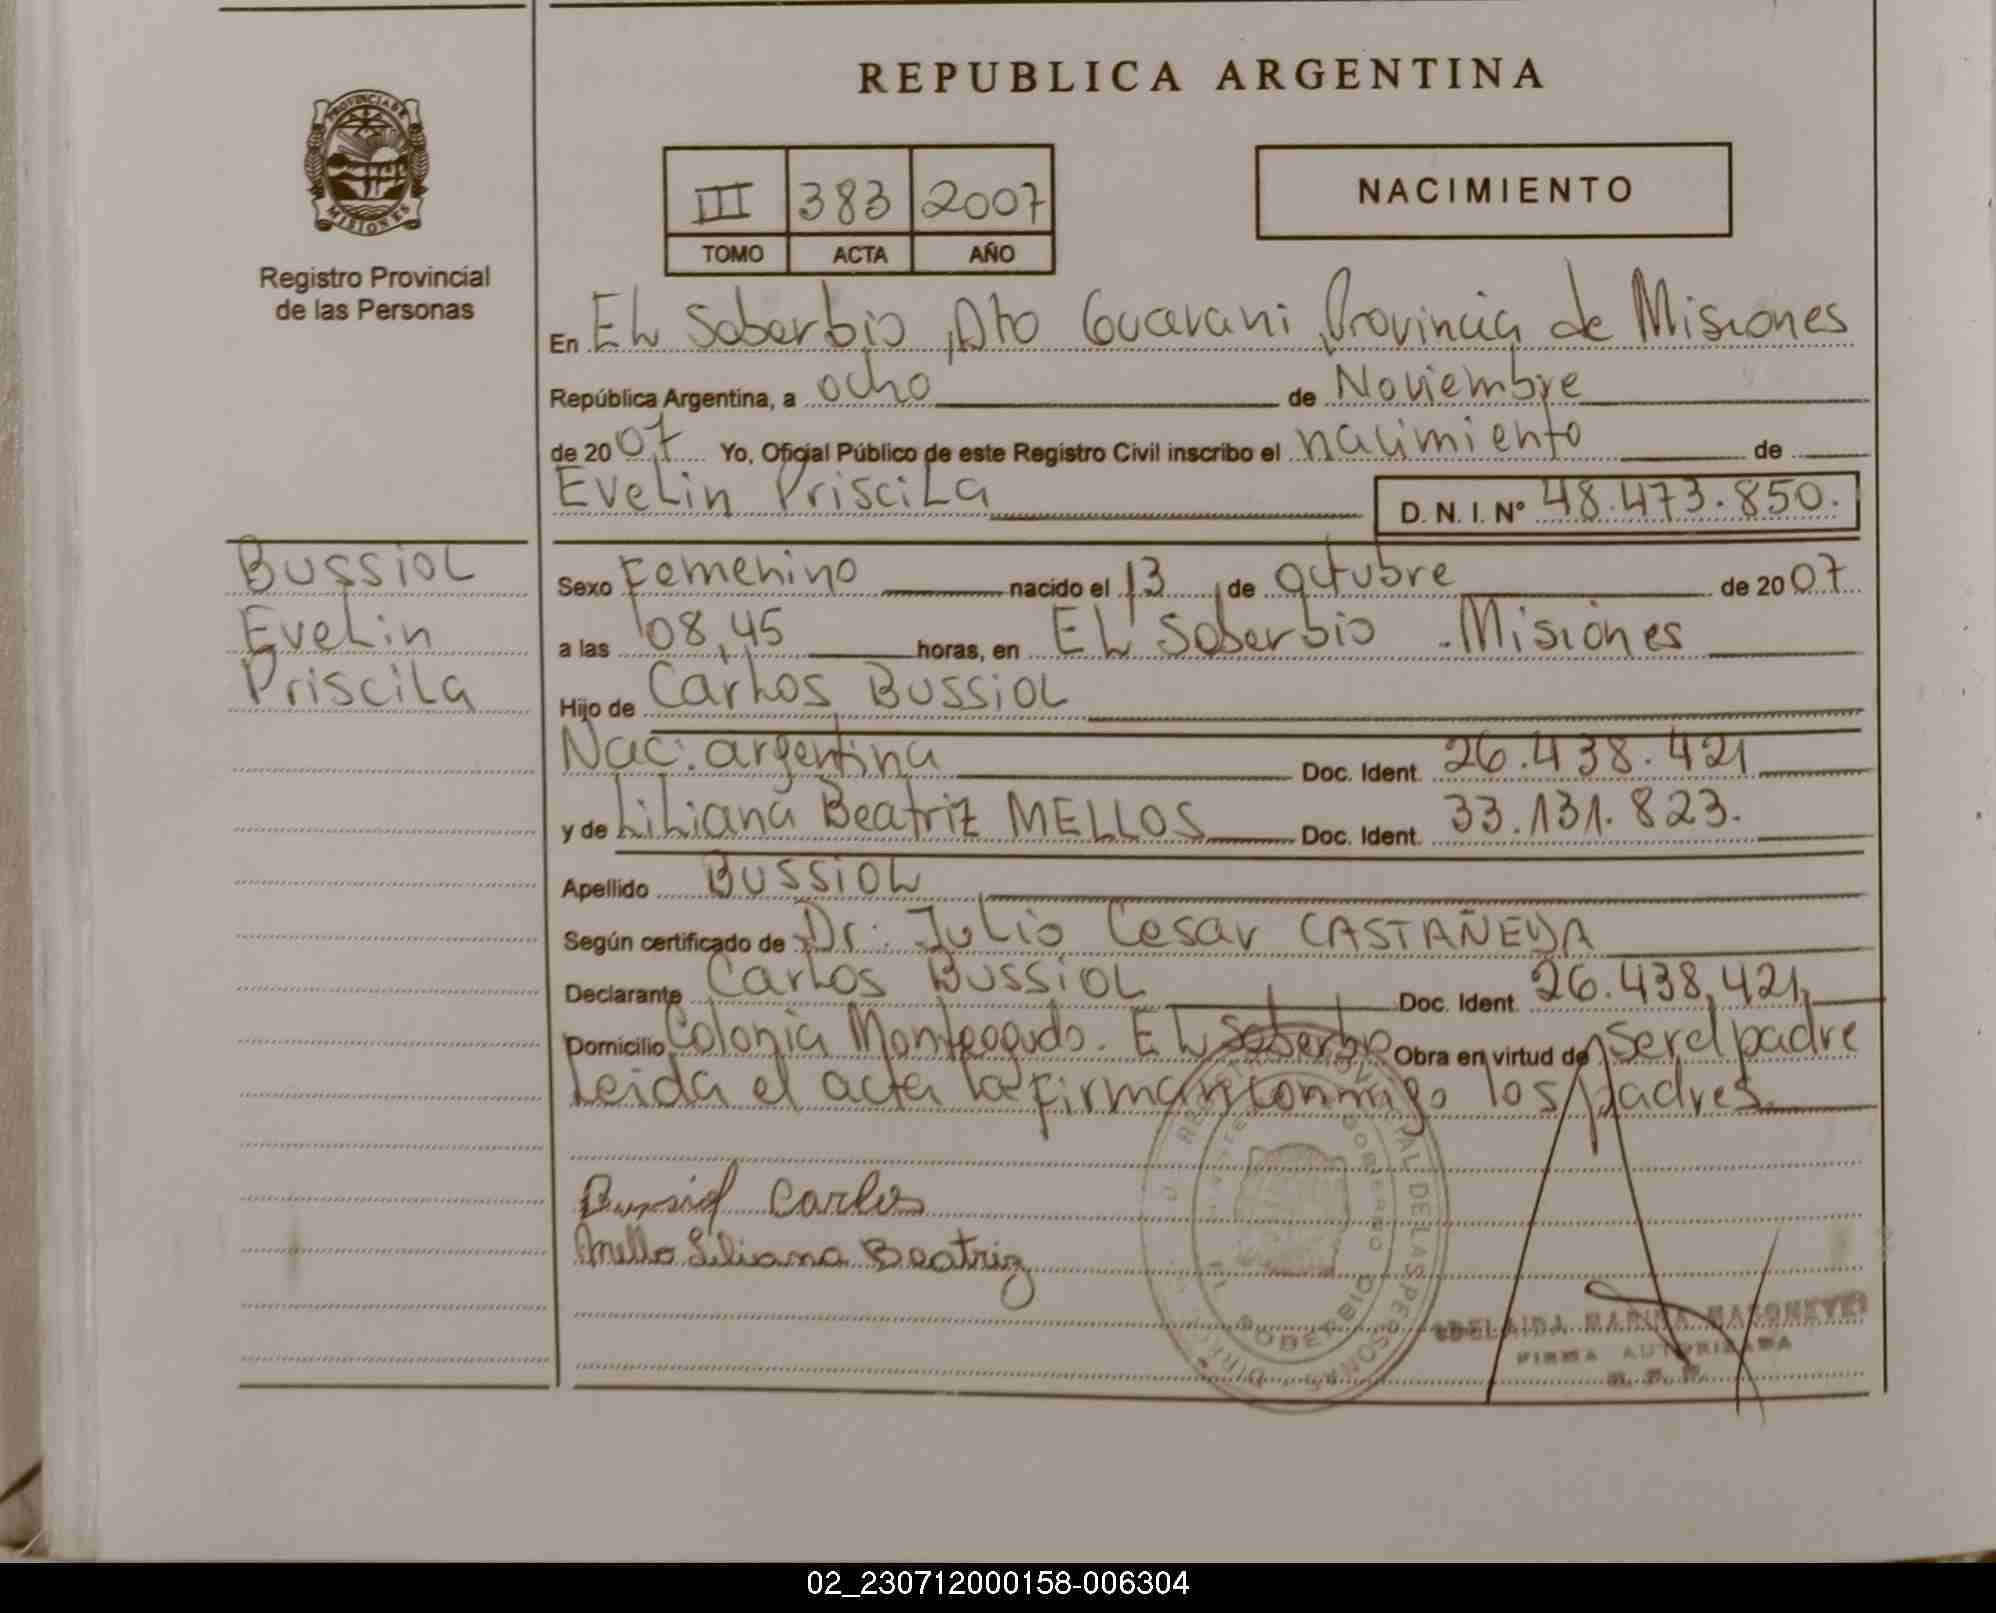 REPUBLICA ARGENTINA
PROVINCIA DE
MISIONES
Registro Provincial
de las Personas
III 383 2007
TOMO ACTA AÑO
NACIMIENTO
En EL Soberbio, Dto Guarani, Provincia de Misiones
República Argentina, a ocho de Noviembre
de 2007 Yo, Oficial Público de este Registro Civil inscribo el nacimiento de
Evelin Priscila D. N. I. Nº 48.473.850.
Bussiol
Evelin
Priscila
Sexo Femenino nacido el 13 de octubre de 2007
a las 08,45 horas, en EL Soberbio - Misiones
Hijo de Carlos BUSSIOL
Nac: argentina Doc. Ident. 26.438.421
y de Liliana Beatriz MELLOS Doc. Ident. 33.131.823.
Apellido BUSSIOL
Según certificado de Dr. Julio Cesar CASTAÑEDA
Declarante Carlos BUSSIOL Doc. Ident. 26.438,421,
Domicilio Colonia Monteagudo. EL Soberbio Obra en virtud de ser el padre
Leida el acta la firman conmigo los padres.
Bussiol Carlos
Mello Liliana Beatriz
DE LAS PERSONAS
GOBIERNO
SOBERBIO
ADELAIDA MARINA
FIRMA AUTORIZADA
02_230712000158-006304